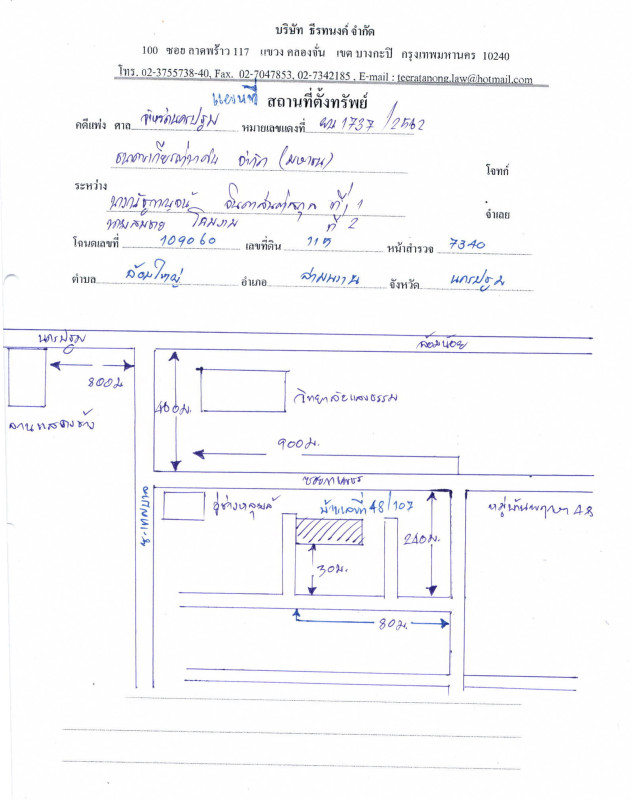 บริษัท ธีรทนงค์ จำกัด
100 ซอย ลาดพร้าว 117 แขวง คลองจั่น เขต บางกะปิ กรุงเทพมหานคร 10240
โทร. 02-3755738-40, Fax. 02-7047853, 02-7342185 , E-mail : teeratanong.law@hotmail.com
แผนที่ สถานที่ตั้งทรัพย์
คดีแพ่ง ศาล จังหวัดนครปฐม หมายเลขแดงที่ ผบ 1737/2562
ธนาคารเกียรตินาคิน จำกัด (มหาชน) โจทก์
ระหว่าง
ที่ 1 จำเลย
นายสมชาย โคมงาม ที่ 2
โฉนดเลขที่ 109060 เลขที่ดิน 115 หน้าสำรวจ 7340
ตำบล อ้อมใหญ่ อำเภอ สามพราน จังหวัด นครปฐม
นครปฐม อ้อมน้อย
800ม
400ม.
วิทยาลัยแสงธรรม
ลานแสดงช้าง
900ม.
ซอยหมอศรี
ซ.เทศบาล
บ้านเลขที่ 48/107
หมู่บ้านพฤกษา 48
240ม.
30ม.
80ม.